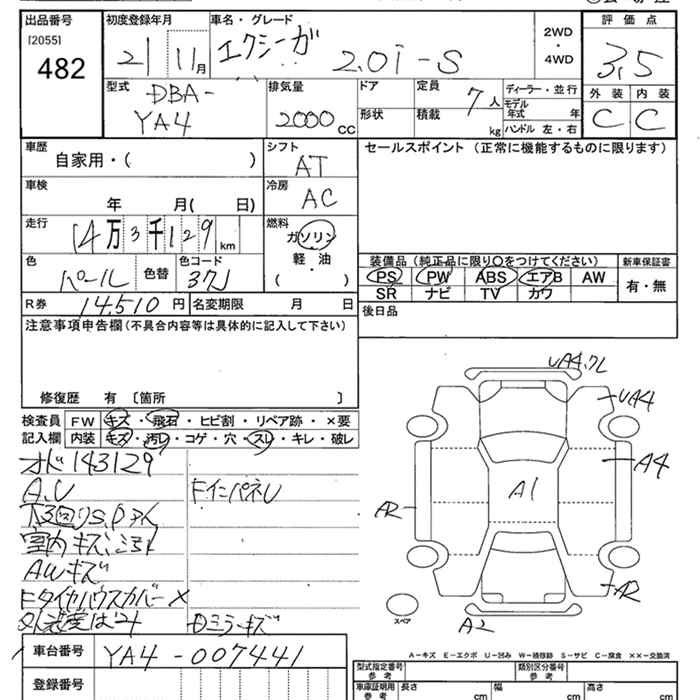 出品番号
[2055]
482
初度登録年月
21 11月
車名・グレード
エクシーガ 2.0i-S
2WD
・
4WD
評価点
3.5
外装 内装
C C
型式
DBA-
YA4
排気量
2000 CC
ドア
形状
定員
7人
積載
kg
ディーラー・並行
モデル年式 年
ハンドル 左・右
車歴
自家用・( )
シフト
AT
セールスポイント (正常に機能するものに限ります)
車検
年 月( 日)
冷房
AC
走行
14万3千129km
燃料
ガソリン
軽・油
( )
色
パール
色替
色コード
37J
R券 14,510円
名変期限 月 日
装備品(純正品に限り○をつけてください)
PS PW ABS エアB AW
SR ナビ TV カワ
新車保証書
有・無
後日品
注意事項申告欄(不具合内容等は具体的に記入して下さい)
修復歴 有 〔箇所 〕
検査員
記入欄
FW キズ・飛石・ヒビ割・リペア跡・×要
内装 キズ・汚レ・コゲ・穴・スレ・キレ・破レ
オド143129
A.U
下回りS.Pサイ
室内キズ、
AWキズ
Fタイヤハウスカバー×
FインパネU
Dミラーキズ
車台番号 YA4-007441
登録番号
UA4.
UA4
A4
A1
A2
A2
A2
スペア
A－キズ E－エクボ U－凹み W－補修跡 S－サビ C－腐食 ××－交換済
型式指定番号
類別区分番号
参考
車庫証明用
参考
長さ cm 幅 cm 高さ cm